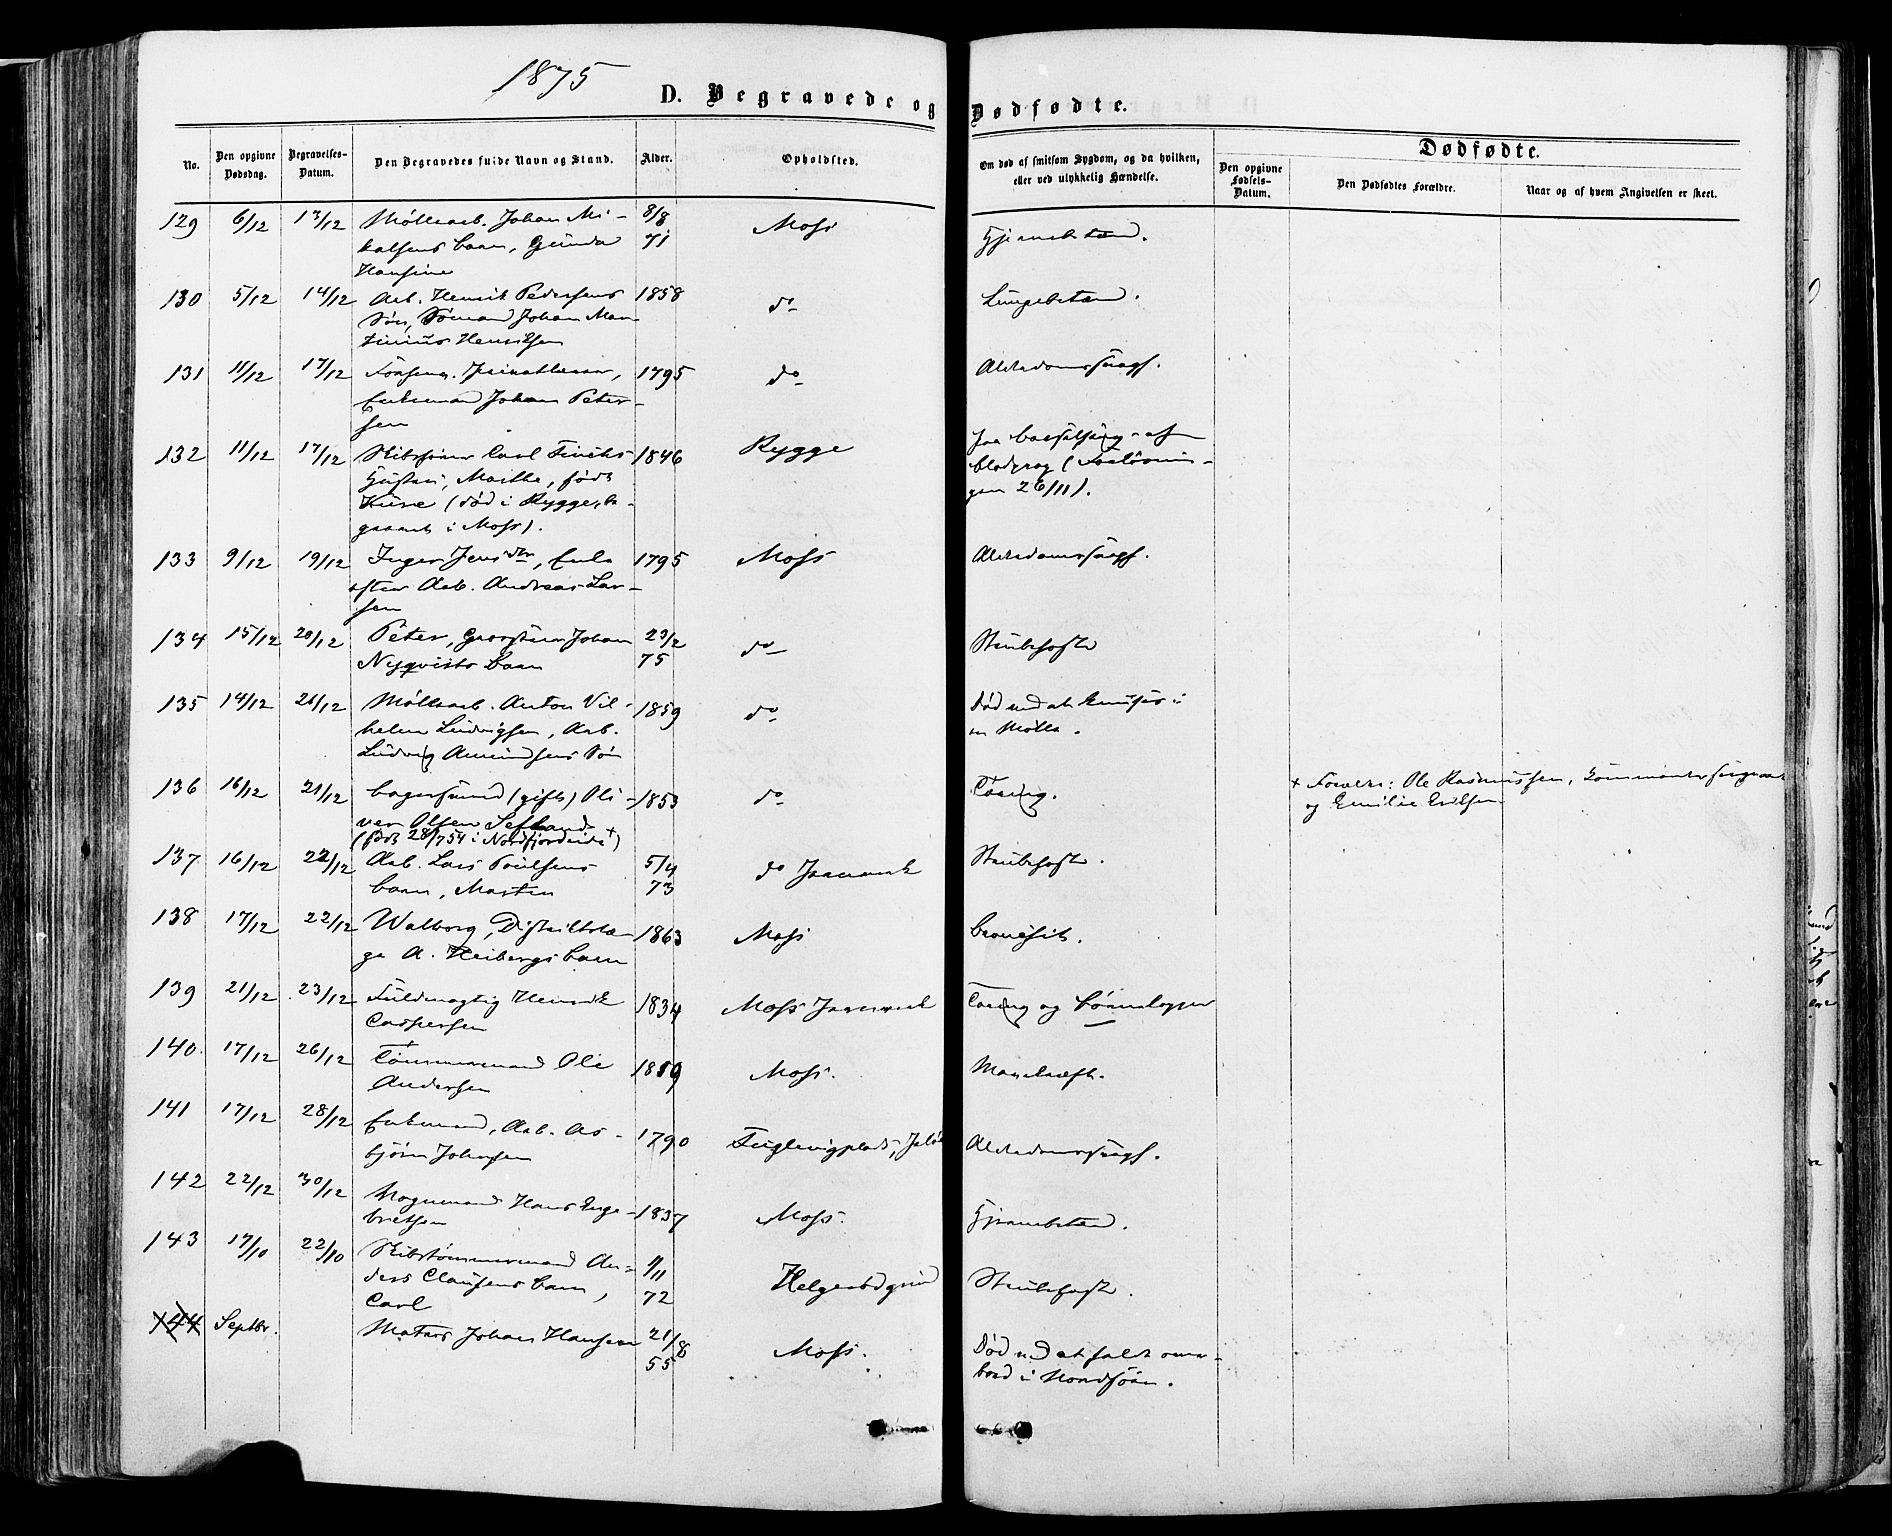 1875
D. Begravede og Dødfødte.
No. Den opgivne Dødsdag. Begravelses-Datum. Den Begravedes fulde Navn og Stand. Alder. Opholdsted. Om død af smitsom Sygdom, og da hvilken, eller ved ulykkelig Hændelse. Dødfødte.
Den opgivne Fødsels-Datum. Den Dødfødtes Forældre. Naar og af hvem Angivelsen er skeet.
129 6/12 13/12 Møllearb. Johan Mi- 8/8 Moss Hjernebetænd.
kalsens Barn, Gunda 71
Hansine
130 5/12 14/12 Arb. Henrik Pedersens 1858 do Lungebetænd.
Søn, Sømand Johan Mar-
tinius Henriksen
131 11/12 17/12 Enkemand Johan Peter- 1795 do Alderdomssvagh.
sen
132 11/12 17/12 Skibsfører Carl 1846 Rygge Barselseng
Hustru, Marthe, født blodprop (Forløsnin-
(død i Rygge, be- gen 26/11).
gravet i Moss).
133 9/12 19/12 Inger Jensdtr, Enke 1795 Moss Alderdomssvagh.
efter Arb. Andreas Lar-
sen
134 15/12 20/12 Peter, Johan 23/2 do Strubehoste
Nyqvists Barn 75
135 14/12 21/12 Møllearb. Anton Vil- 1859 do Død ved at knuses i
helm Ludvigsen, Arb. en Mølle.
Ludvig Amundsens Søn
136 16/12 21/12 Bagersvend (gift) Oli- 1853 do Tæring. + Forældre: Ole Rasmussen,
ver Olsen og Emilie Eriksen.
(født 28/7 54 i Nordfjordeide +)
137 16/12 22/12 Arb. Lars Poulsens 5/4 do Jernverk Strubehoste.
Barn, Marten 73
138 17/12 22/12 Walborg, Distriktslæ- 1863 Moss
ge A. Heibergs Barn
139 21/12 23/12 Fuldmægtig Henrik 1834 Moss Jernverk Tæring og Børnekopper
Caspersen
140. 17/12 26/12 Tømmermand Ole Moss. Mavekræft.
Andersen
141 17/12 28/12 Enkemand, Arb. As- 1790 Fuglevigplads, Jelø Alderdomssvagh.
bjørn Johnsen
142 22/12 30/12 Vognmand Hans Inge- 1837 Moss. Hjernebetænd.
bretsen
143 17/10 22/10 Skibstømmermand An-
ders Clausens Barn, 72 Strubehoste.
Carl
144 Septbr. Matros Johan Hansen 21/8 Moss. Død ved at falde over-
55 bord i Nordsøen.